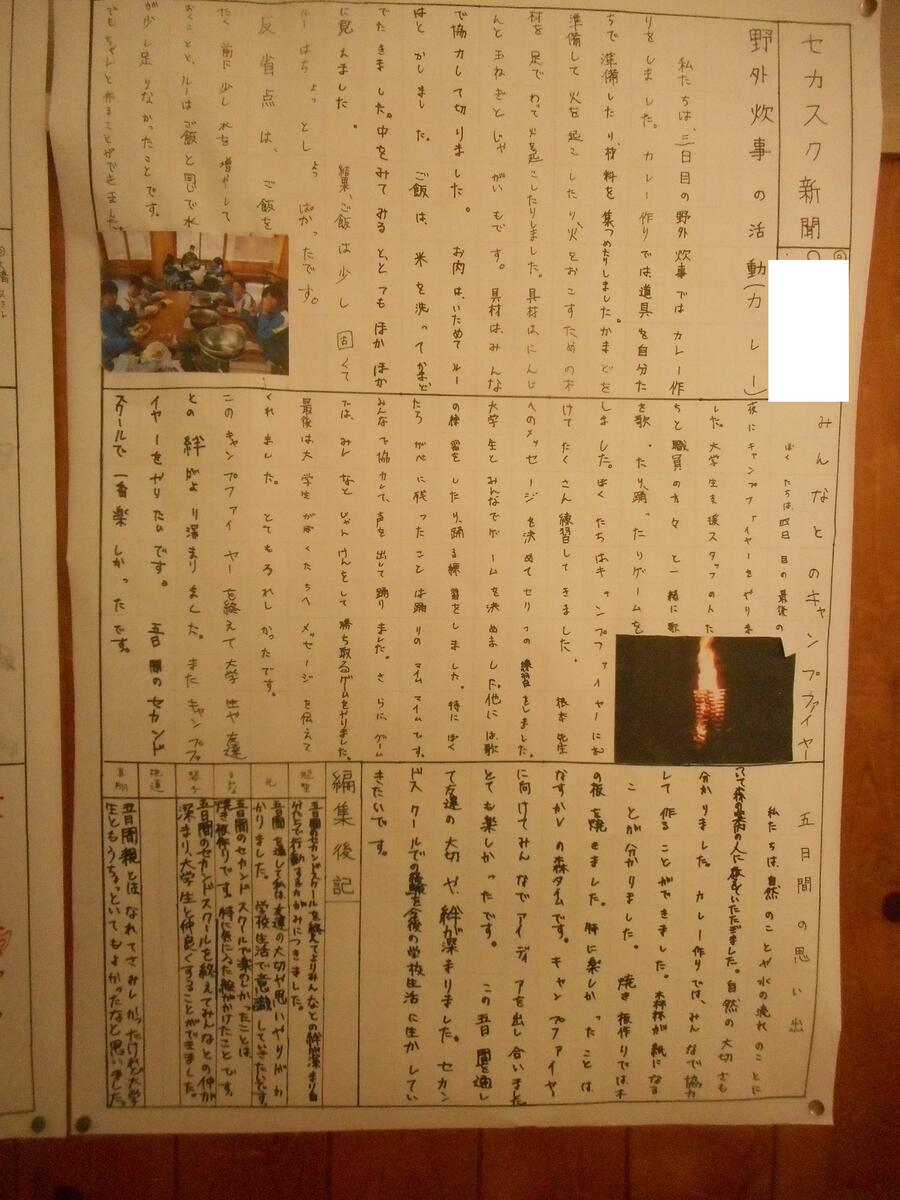 セカスク新聞
野外炊事の活動(カレー)
私たちは、三日目の野外炊事ではカレー作
りをしました。カレー作りでは、道具を自分た
ちで準備したり、材料を集つめたりしました。かまどを
準備して火を起こしたり、火をおこすための木
材を足でわって火を起こしたりしました。具材は、にんじ
んと玉ねぎとじゃがいもです。具材は、みんな
で協力して切りました。お肉は、いためてルー
はとかしました。ご飯は、米を洗ってかまど
でたきました。中をみてみると、とてもほかほか
に見えました。結果、ご飯は少し固くて
ルーはちょっとしょっぱかったです。
反省点は、ご飯を
たく前に少し水を増やして
おくことと、ルーはご飯と同じで水
が少し足りなかったことです。
でもちゃんと作ることができました。
みんなとのキャンプファイヤー
ぼくたちは、四日目の最後の
夜にキャンプファイヤーをやりま
した。大学生を援スタッフの人た
ちと職員の方々と一緒に歌
を歌ったり、踊ったりゲームを
しました。ぼくたちはキャンプファイヤーにむ
けてたくさん練習してきました。根本先生
へのメッセージを決めてセリフの練習をしました。
大学生とみんなでゲームを決めました。他には、歌
の練習をしたり、踊る練習をしました。特にぼく
たちがべに残ったことは踊りのマイムマイムです。
みんなで協力して、声を出して踊りました。さらに、ゲーム
では、みんなとじゃんけんをして勝ち取るゲームをやりました。
最後は大学生がぼくたちへメッセージを伝えて
くれました。とてもうれしかったです。
このキャンプファイヤーを終えて大学生や友達
との絆がより深まりました。またキャンプファ
イヤーをやりたいです。五日間のセカンド
スクールで一番楽しかったです。
五日間の思い出
私たちは、自然のことや水の流れのことに
ついて森の案内の人に教えていただきました。自然の大切さも
分かりました。カレー作りでは、みんなで協力
して作ることができました。森林が紙になる
ことが分かりました。焼き板作りでは、木
の板を焼きました。特に楽しかったことは
なすかしの森タイムです。キャンプファイヤー
に向けてみんなでアイディアを出し合いました。
とても楽しかったです。この五日間を通し
て友達の大切や、絆が深まりました。セカン
ドスクールでの経験を今後の学校生活に生かしてい
きたいです。
編集後記
五日間のセカンドスクールを終えてよりみんなとの絆が深まり自
分たちで行動する力がみにつきました。
五日間を通して私は、友達の大切や思いやりがわ
かりました。学校生活で意識していきたいです。
五日間のセカンドスクールで楽しかったことは、
焼き板作りです。特に気に入った絵がかけたことです。
五日間のセカンドスクールを終えてみんなとの仲が
深まり、大学生と仲良くすることができました。
五日間親とはなれてさみしかったけれど大学
生ともうちょっといてもよかったなと思いました。